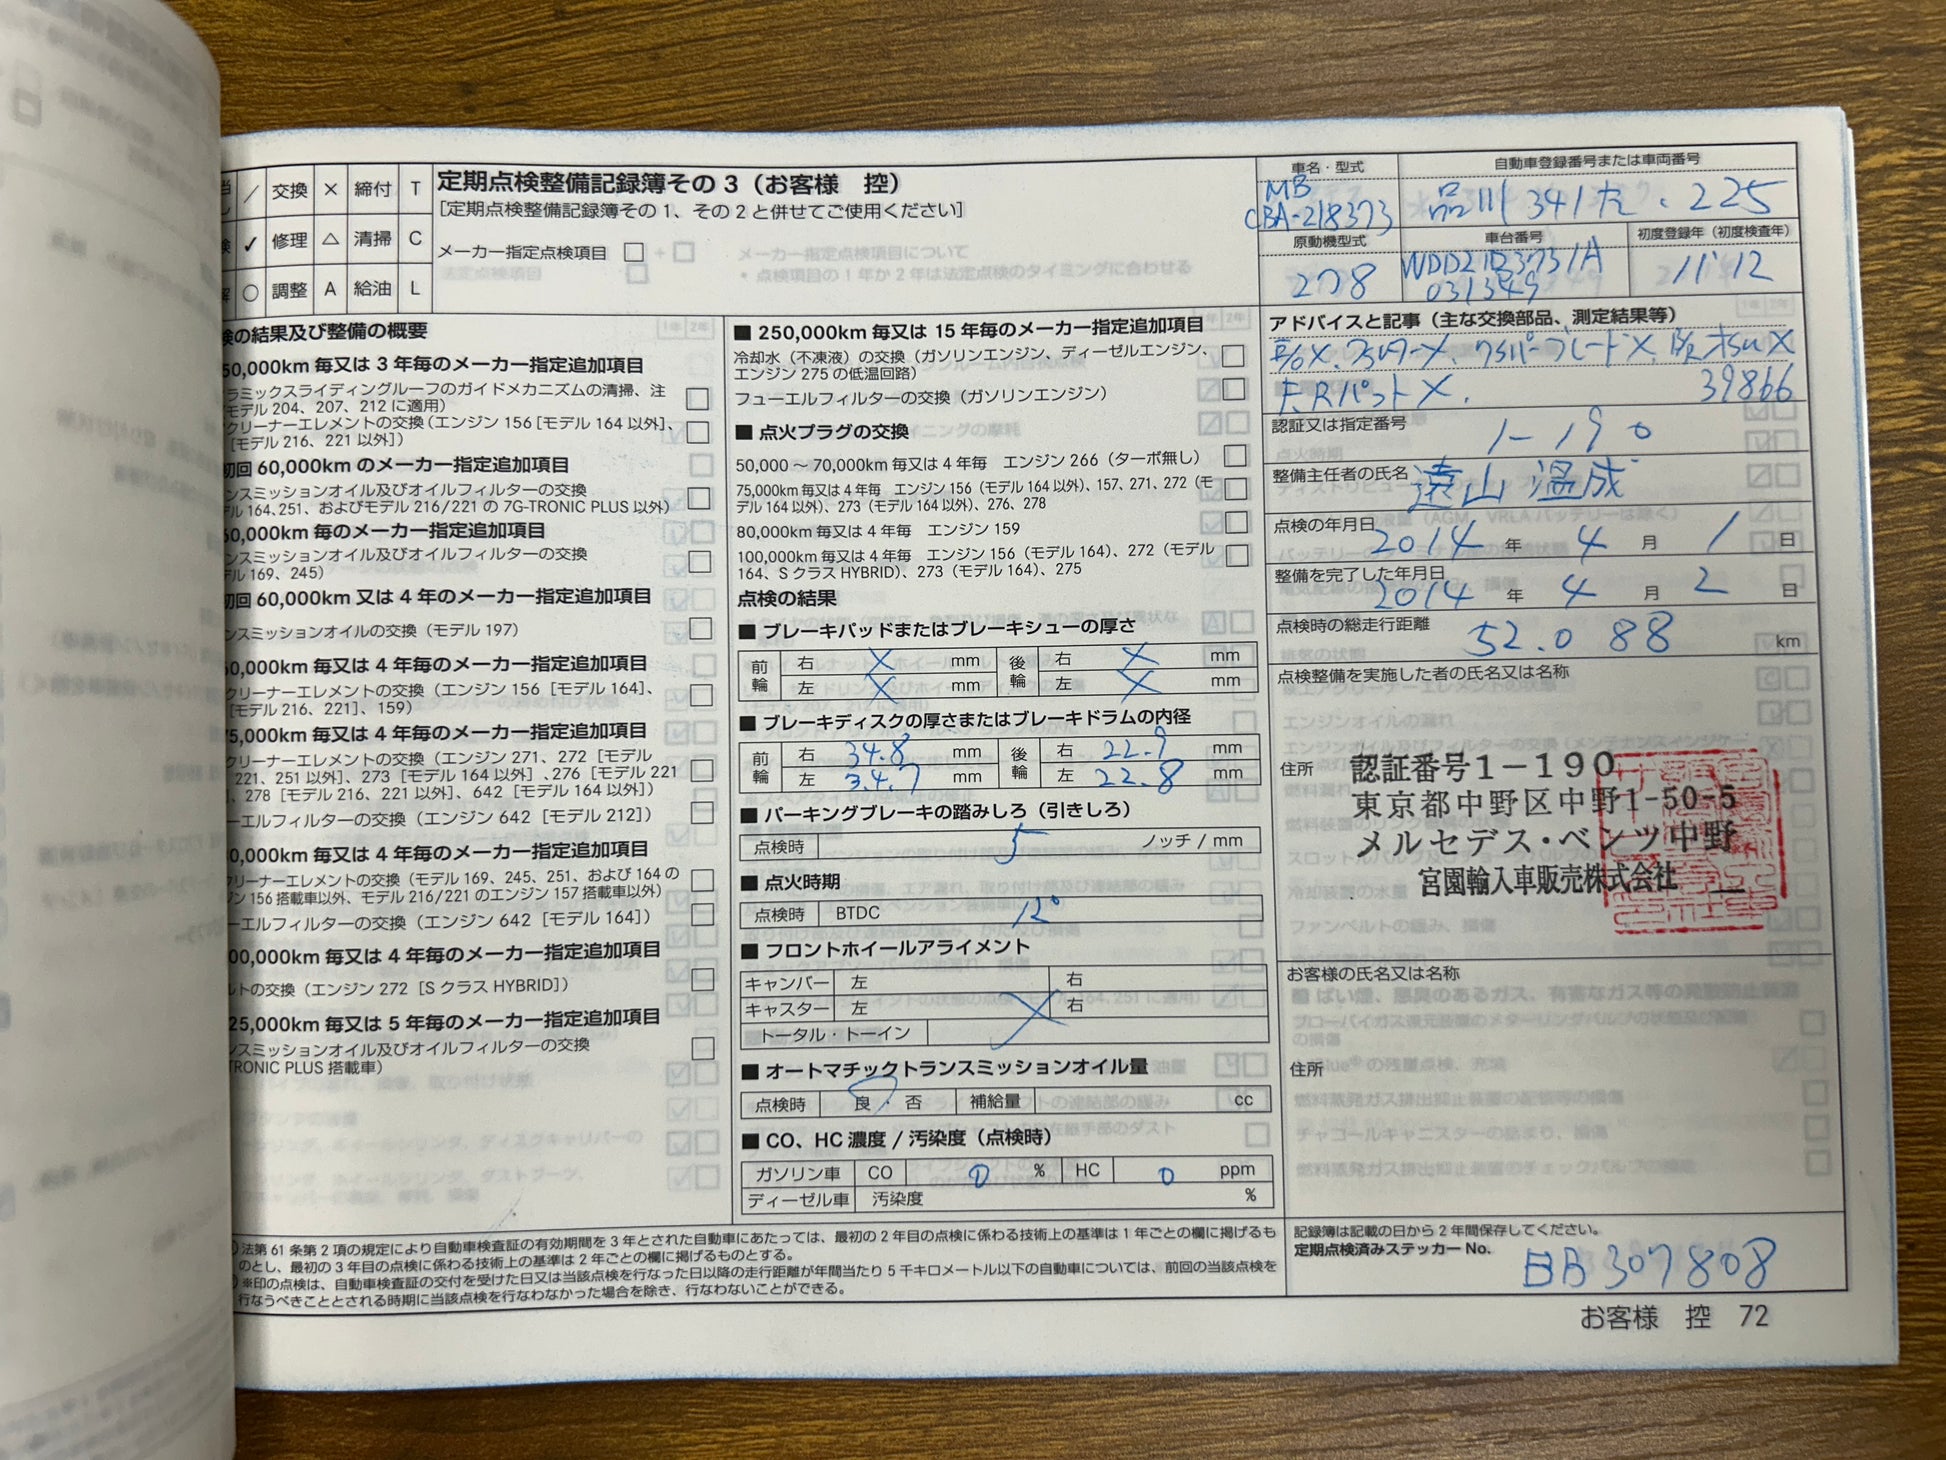 ／ 交換 ✕ 締付 T
✓ 修理 △ 清掃 C
○ 調整 A 給油 L
定期点検整備記録簿その３（お客様　控）
［定期点検整備記録簿その１、その２と併せてご使用ください］
メーカー指定点検項目 □
車名・型式
MB
CBA-218373
自動車登録番号または車両番号
品川 341 た・225
原動機型式
278
車台番号
初度登録年（初度検査年）
11'12
検の結果及び整備の概要
50,000km 毎又は 3 年毎のメーカー指定追加項目
ラミックスライディングルーフのガイドメカニズムの清掃、注
モデル 204、207、212 に適用）
クリーナーエレメントの交換（エンジン 156［モデル 164 以外］、
［モデル 216、221 以外］）
初回 60,000km のメーカー指定追加項目
ンスミッションオイル及びオイルフィルターの交換
デル 164､251、およびモデル 216/221 の 7G-TRONIC PLUS 以外）
60,000km 毎のメーカー指定追加項目
ンスミッションオイル及びオイルフィルターの交換
デル 169、245）
初回 60,000km 又は 4 年のメーカー指定追加項目
ンスミッションオイルの交換（モデル 197）
60,000km 毎又は 4 年毎のメーカー指定追加項目
クリーナーエレメントの交換（エンジン 156［モデル 164］、
［モデル 216、221］、159）
75,000km 毎又は 4 年毎のメーカー指定追加項目
クリーナーエレメントの交換（エンジン 271、272［モデル
221、251 以外］、273［モデル 164 以外］、276［モデル 221
］、278［モデル 216、221 以外］、642［モデル 164 以外］）
ーエルフィルターの交換（エンジン 642［モデル 212］）
0,000km 毎又は 4 年毎のメーカー指定追加項目
クリーナーエレメントの交換（モデル 169、245、251、および 164 の
ジン 156 搭載車以外、モデル 216/221 のエンジン 157 搭載車以外）
ーエルフィルターの交換（エンジン 642［モデル 164］）
00,000km 毎又は 4 年毎のメーカー指定追加項目
ルトの交換（エンジン 272［S クラス HYBRID］）
25,000km 毎又は 5 年毎のメーカー指定追加項目
ンスミッションオイル及びオイルフィルターの交換
TRONIC PLUS 搭載車）
■ 250,000km 毎又は 15 年毎のメーカー指定追加項目
冷却水（不凍液）の交換（ガソリンエンジン、ディーゼルエンジン、
エンジン 275 の低温回路）
フューエルフィルターの交換（ガソリンエンジン）
■ 点火プラグの交換
50,000 〜 70,000km 毎又は 4 年毎　エンジン 266（ターボ無し）
75,000km 毎又は 4 年毎　エンジン 156（モデル 164 以外）、157、271、272（モ
デル 164 以外）、273（モデル 164 以外）、276、278
80,000km 毎又は 4 年毎　エンジン 159
100,000km 毎又は 4 年毎　エンジン 156（モデル 164）、272（モデル
164、S クラス HYBRID）、273（モデル 164）、275
点検の結果
■ ブレーキパッドまたはブレーキシューの厚さ
前輪 右 ✕ mm 後輪 右 ✕ mm
左 ✕ mm 左 ✕ mm
■ ブレーキディスクの厚さまたはブレーキドラムの内径
前輪 右 34.8 mm 後輪 右 22.9 mm
左 34.7 mm 左 22.8 mm
■ パーキングブレーキの踏みしろ（引きしろ）
点検時 5 ノッチ / mm
■ 点火時期
点検時 BTDC 12°
■ フロントホイールアライメント
キャンバー 左 右
キャスター 左 右
トータル・トーイン
■ オートマチックトランスミッションオイル量
点検時 良・否 補給量 cc
■ CO、HC 濃度 / 汚染度（点検時）
ガソリン車 CO 0 % HC 0 ppm
ディーゼル車 汚染度 %
アドバイスと記事（主な交換部品、測定結果等）
ワイパーブレード ✕
F.Rパット ✕. 39866
認証又は指定番号 1-190
整備主任者の氏名 遠山 温成
点検の年月日 2014 年 4 月 1 日
整備を完了した年月日 2014 年 4 月 2 日
点検時の総走行距離 52.088 km
点検整備を実施した者の氏名又は名称
認証番号１－１９０
住所 東京都中野区中野1-50-5
メルセデス・ベンツ中野
宮園輸入車販売株式会社
お客様の氏名又は名称
住所
法第 61 条第 2 項の規定により自動車検査証の有効期間を 3 年とされた自動車にあたっては、最初の 2 年目の点検に係わる技術上の基準は 1 年ごとの欄に掲げるも
のとし、最初の 3 年目の点検に係わる技術上の基準は 2 年ごとの欄に掲げるものとする。
※印の点検は、自動車検査証の交付を受けた日又は当該点検を行なった日以降の走行距離が年間当たり 5 千キロメートル以下の自動車については、前回の当該点検を
行なうべきこととされる時期に当該点検を行なわなかった場合を除き、行なわないことができる。
記録簿は記載の日から 2 年間保存してください。
定期点検済みステッカー No.
307808
お客様　控　72